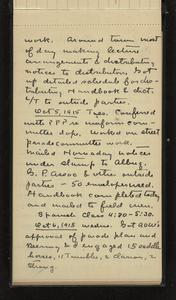 work. Around town most
of day making lecture
arrangements & distributing
notices to distributors. Got
up detailed schedule for dis-
tributing Handbook & dict.
L/T to outside parties.
Oct 5, 1915 Tues. Conferred
with P.P.R. uniform com-
mittee dope. Worked on street
parade committee work.
Mailed Hornaday notices
under stamp to Albuq.
G. P. Assoc & other outside
parties - 50 envelopes used.
Handbook completed today
and mailed to field men.
Spanish Class 4:20 - 5:20.
Oct 6, 1915 Wednes. Got Gov's
approval of parade plan and
Kearney & engaged 15 saddle
horses, 11 Trumbles, 2 Clarion, 2
Strong.